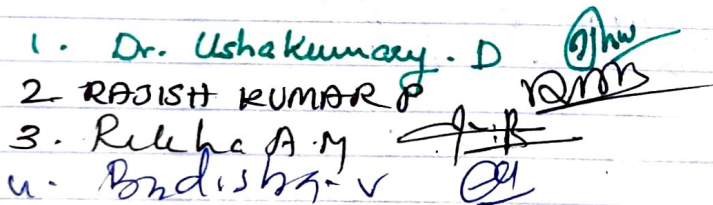 1. Dr. Ushakumary. D
2. RAJISH KUMAR P
3. Rekha A.M
4.